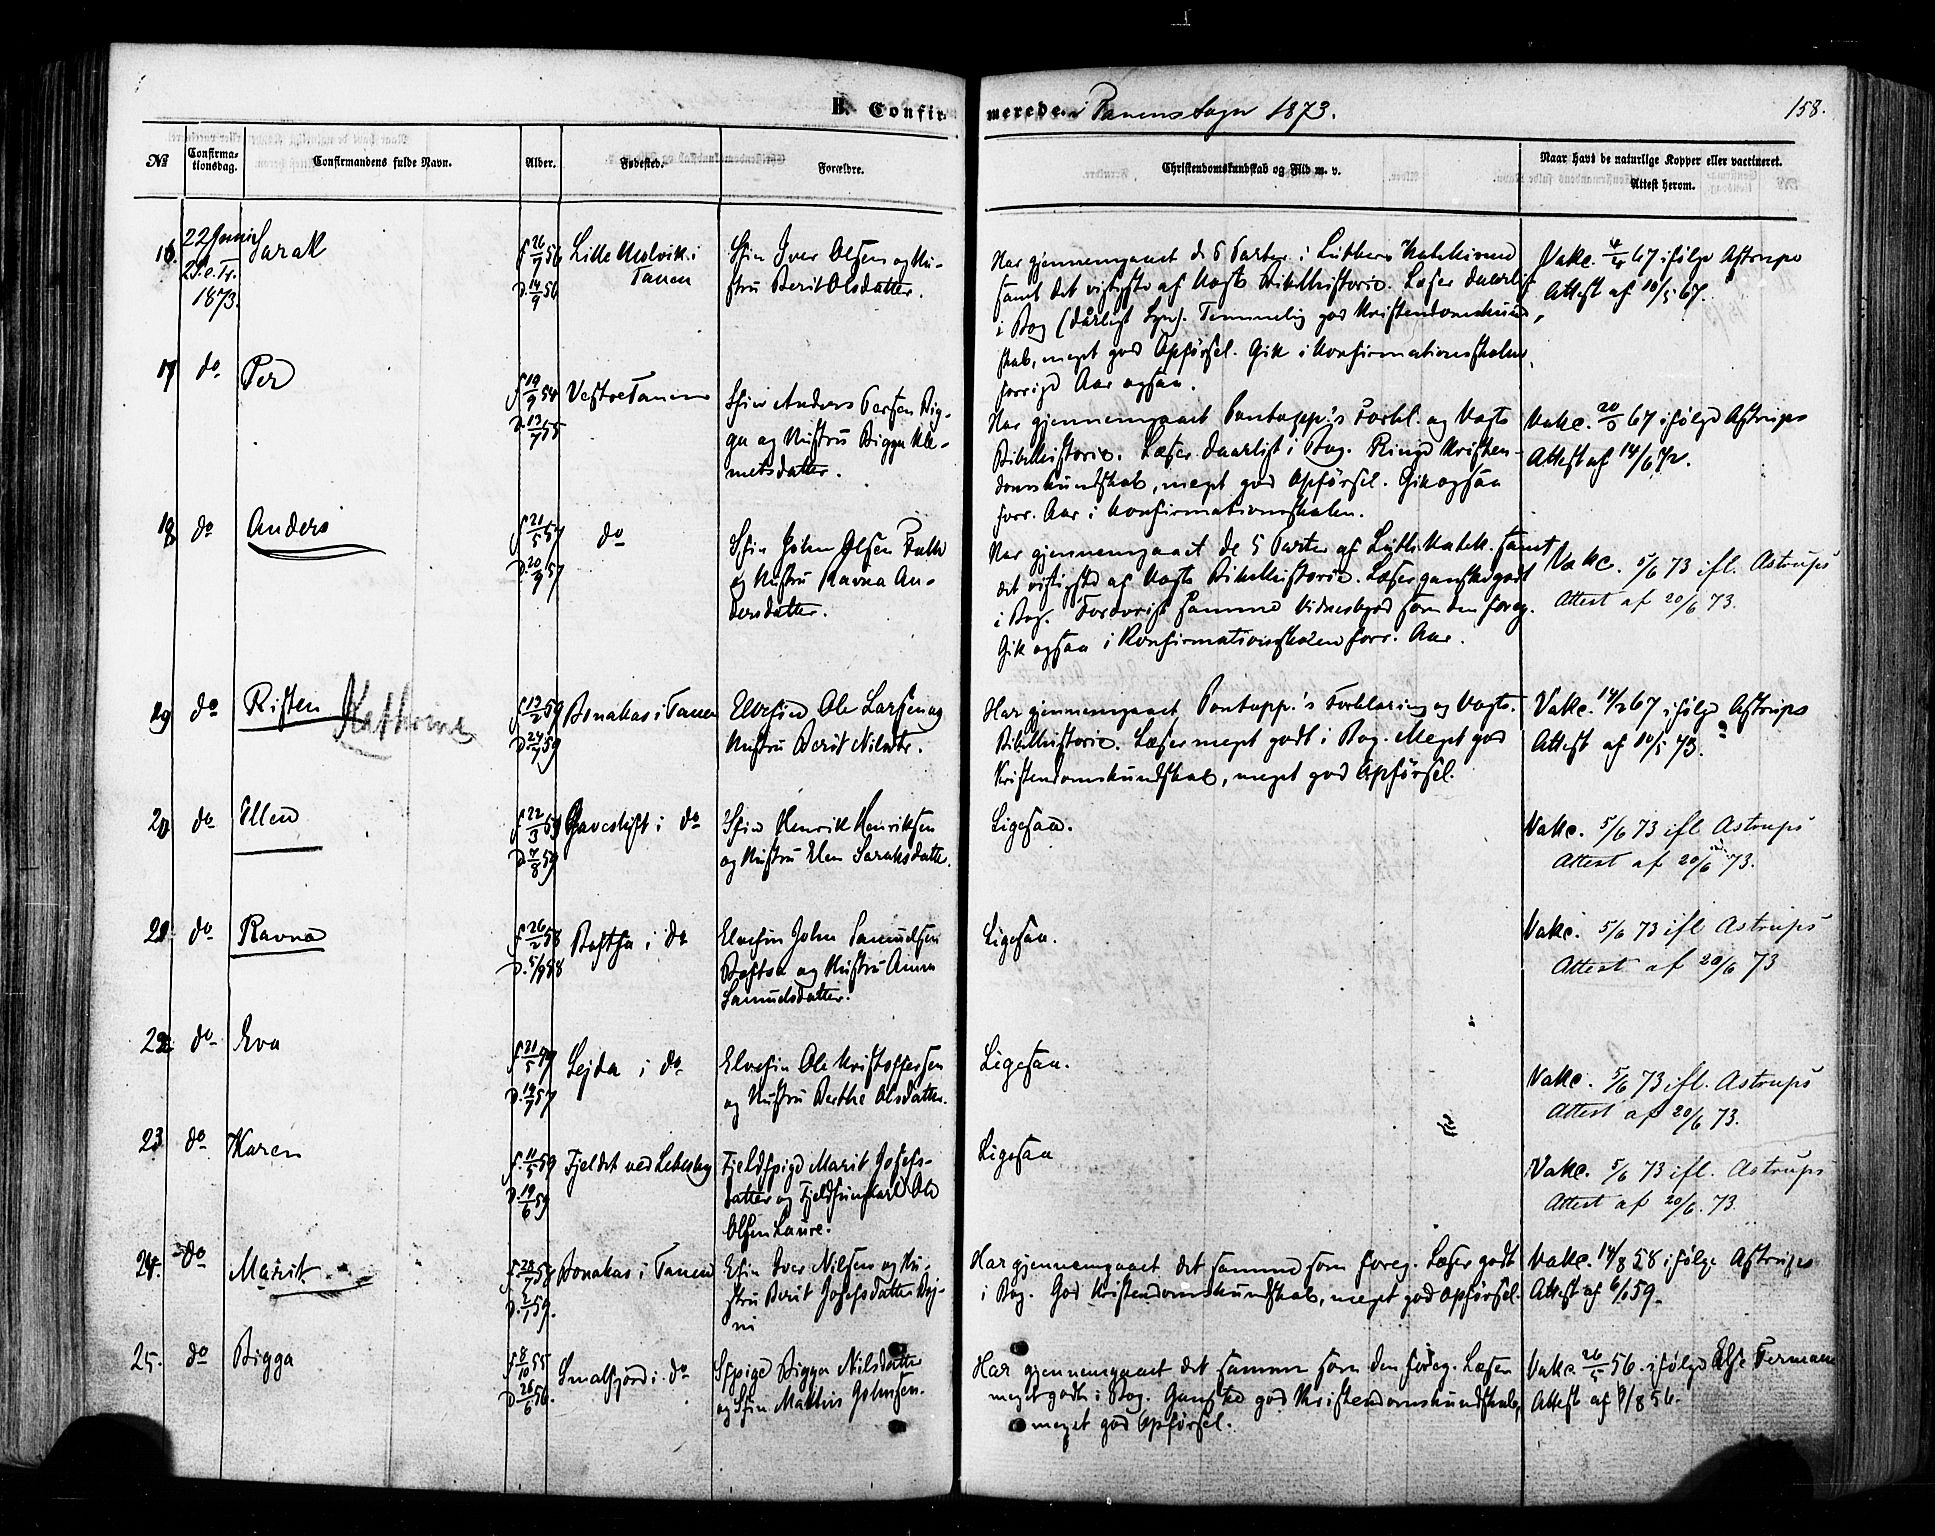 B. Confirmerede. i Tanens Sogn 1873.
158.
No
Confirmationsdag.
Confirmandens fulde Navn.
Alder.
Fødested.
Forældre.
Christendomskundskab og Flid m. v.
Naar havt de naturlige Kopper eller vaccineret.
Attest herom.
16. 22 Juni 2 S. e. Tr. 1873. Sarak
f. 26/7 56
D. 14/9 56
Lille Molvik i
Tanen
Sfin Iver Olsen og Hu-
stru Berit Olsdatter.
Har gjennemgaaet de 5 Parter i Luthers Katekisme
samt det vigtigste af Vogts Bibelhistorie. Læser daarligt
i Bog (dårligt Syn). Temmelig god Kristendomskund-
skab, meget god Opførsel. Gik i Konfirmationsskolen
forrige Aar ogsaa.
Vakc. 67 ifølge Astrups
Attest af 10/5 67.
17 do Per
f. 19/9 54
D. 13/7 55
Vestre Tanen
Sfin Anders Persen Big-
ga og Hustru Bigga Kle-
metsdatter.
Har gjennemgaaet Pontopp.'s Forkl. og Vogts
Bibelhistorie. Læser daarligt i Bog. Ringe Kristen-
domskundskab, meget god Opførsel. Gik ogsaa
forr. Aar i Konfirmationsskolen.
Vakc. 67 ifølge Astrups
Attest af 14/6 72.
18 do Anders
f. 21/5 57
D. 20/9 57
do
Sfin John Olsen Falk
og Hustru Ravna An-
dersdatter.
Har gjennemgaaet de 5 Parter af Luth. Katek. samt
det vigtigste af Vogts Bibelhistorie. Læser ganske godt
i Bog. Forøvrigt samme Vidnesbyrd som den foreg.
Gik ogsaa i Konfirmationsskolen forr. Aar.
Vakc. 5/6 73 ifl. Astrups
Attest af 20/6 73.
19 do Risten Kathrine
f. 13/2 59
D. 24/7 59
Bonakas i Tanen
Elvefin Ole Larsen og
Hustru Berit Nilsdtr.
Har gjennemgaaet Pontopp.'s Forklaring og Vogts
Bibelhistorie. Læser meget godt i Bog. Meget god
Kristendomskundskab, meget god Opførsel.
Vakc. 14/2 67 ifølge Astrups
Attest af 10/5 73.
20 do Ellen
f. 22/3 59
D. 7/8 59
Gaveslift i do
Sfin Henrik Henriksen
og Hustru Elen Saraksdatter.
Ligesaa.
Vakc. 5/6 73 ifl. Astrups
Attest af 20/6 73.
21 do Ravna
f. 26/2 58
D. 5/9 58
Boftsa i do
Elvefin John Samuelsen
Boftsa og Hustru Anna
Samuelsdatter.
Ligesaa.
Vakc. 5/6 73 ifl. Astrups
Attest af 20/6 73
22 do Eva
f. 21/5 57
D. 19/7 57
Sejda i do
Elvefin Ole Kristoffersen
og Hustru Berthe Olsdatter.
Ligesaa.
Vakc. 5/6 73 ifl. Astrups
Attest af 20/6 73.
23 do Karen
f. 11/5 59
D. 19/6 59
Fjeldet ved Lebesby
Fjeldfpige Marit Josefs-
datter og Fjeldfinungkarl Ole
Olsen Laure.
Ligesaa
Vakc. 5/6 73 ifl. Astrups
Attest af 20/6. 73.
24. do Marit
Bonakas i Tanen
Efin Iver Nilsen og Hu-
stru Berit Josefsdatter Boj-
ni
Har gjennemgaaet det samme som foreg. Læser godt
i Bog. God Kristendomskundskab, meget god Opførsel.
Vakc. 14/8 58 ifølge Astrups
Attest af 6/1 59.
25. do Bigga
f. 8/10 55
D. 26/6 56.
Smalfjord i do
Sfpige Bigga Nilsdatter
og Sfin Mathis Johnsen.
Har gjennemgaaet det samme som den foreg. Læser
meget godt i Bog. Ganske god Kristendomskundskab,
meget god Opførsel.
Vakc. 26/5 56. ifølge Else Fermans
Attest af 9/8 56.